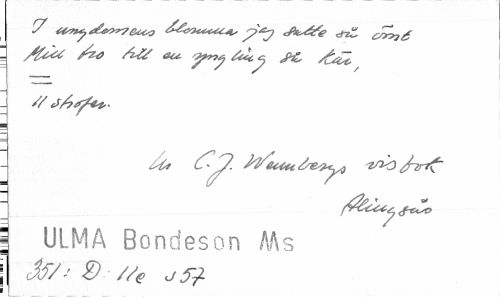 I ungdomens blomma jag satte så ömt
Mitt tro till en yngling så kär,
=
11 strofer.
Ur C. J. Wennbergs visbok
Alingsås
ULMA Bondeson Ms
351: D 11e s 57